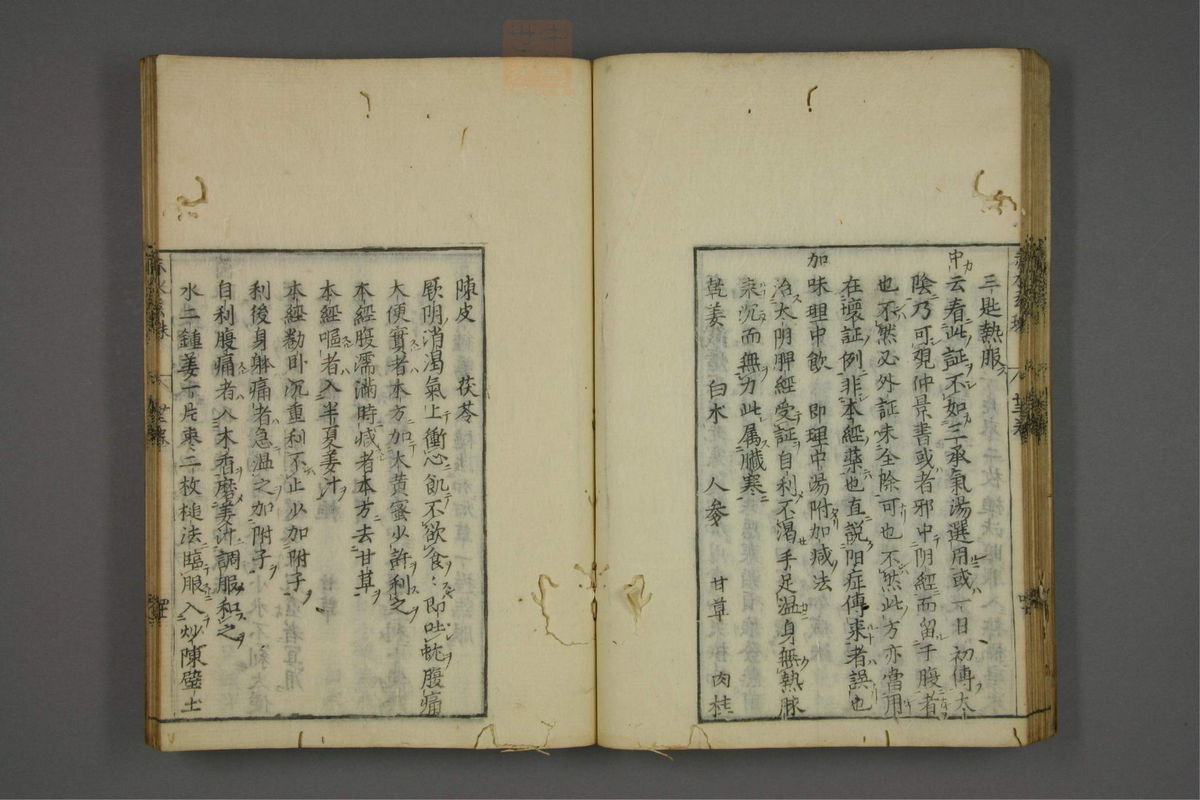 三匙熱服
中云看此証不如三承氣湯選用或一日初傳太
陰乃可現仲景書或者邪中阴經而留于腹者
也不然必外証未全除可也不然此方亦當用
在壞証例非本經藥也直説阳症傳来者誤也
加味理中飲 即理中湯附加减法
治太阴脾經受証自利不渴手足温身無熱脉
来沉而無力此属臟寒
乹姜 白水 人參 甘草 肉桂
陳皮 茯苓
厥阴消渴氣上衝心飢不欲食〻即吐蚘腹痛
大便實者本方加大黄蜜少許利之
本經腹濡滿時减者本方去甘草
本經嘔者入半夏姜汁
本經勌卧沉重利不止少加附子
利後身躰痛者急温之加附子
自利腹痛者入木香磨姜汁調服和之
水二鍾姜一片枣二枚槌法臨服入炒陳壁土